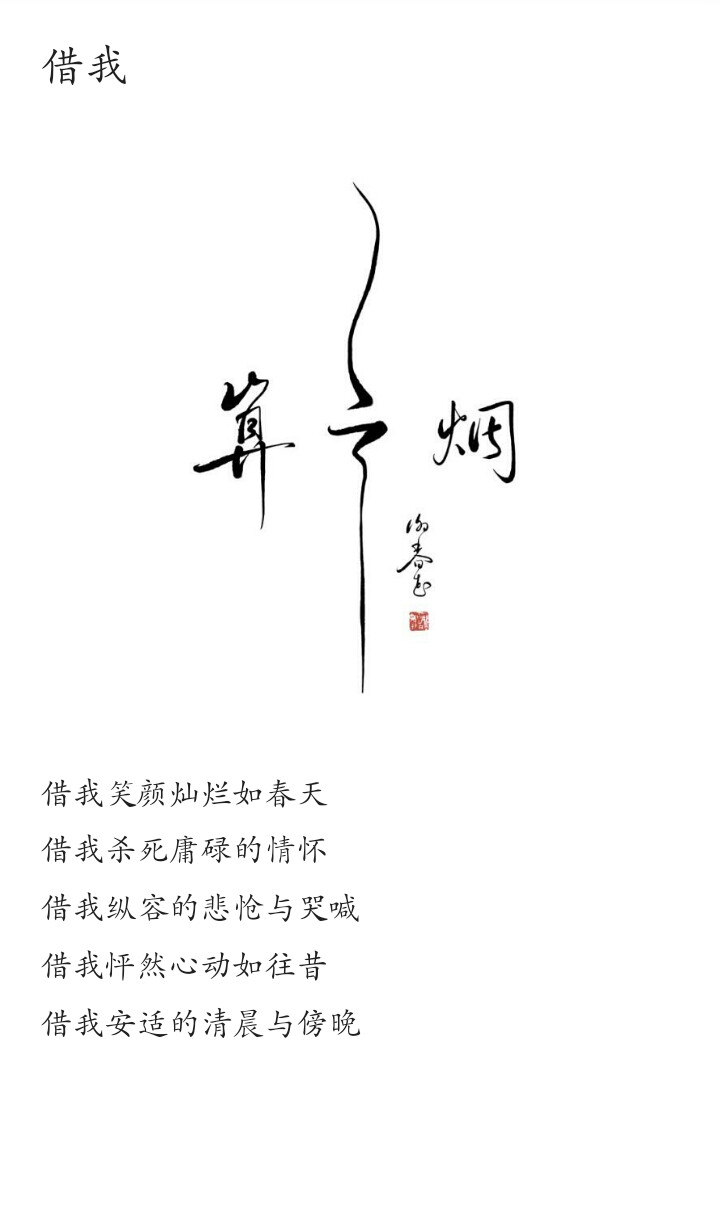 借我
算云烟
谢春花
借我笑颜灿烂如春天
借我杀死庸碌的情怀
借我纵容的悲怆与哭喊
借我怦然心动如往昔
借我安适的清晨与傍晚